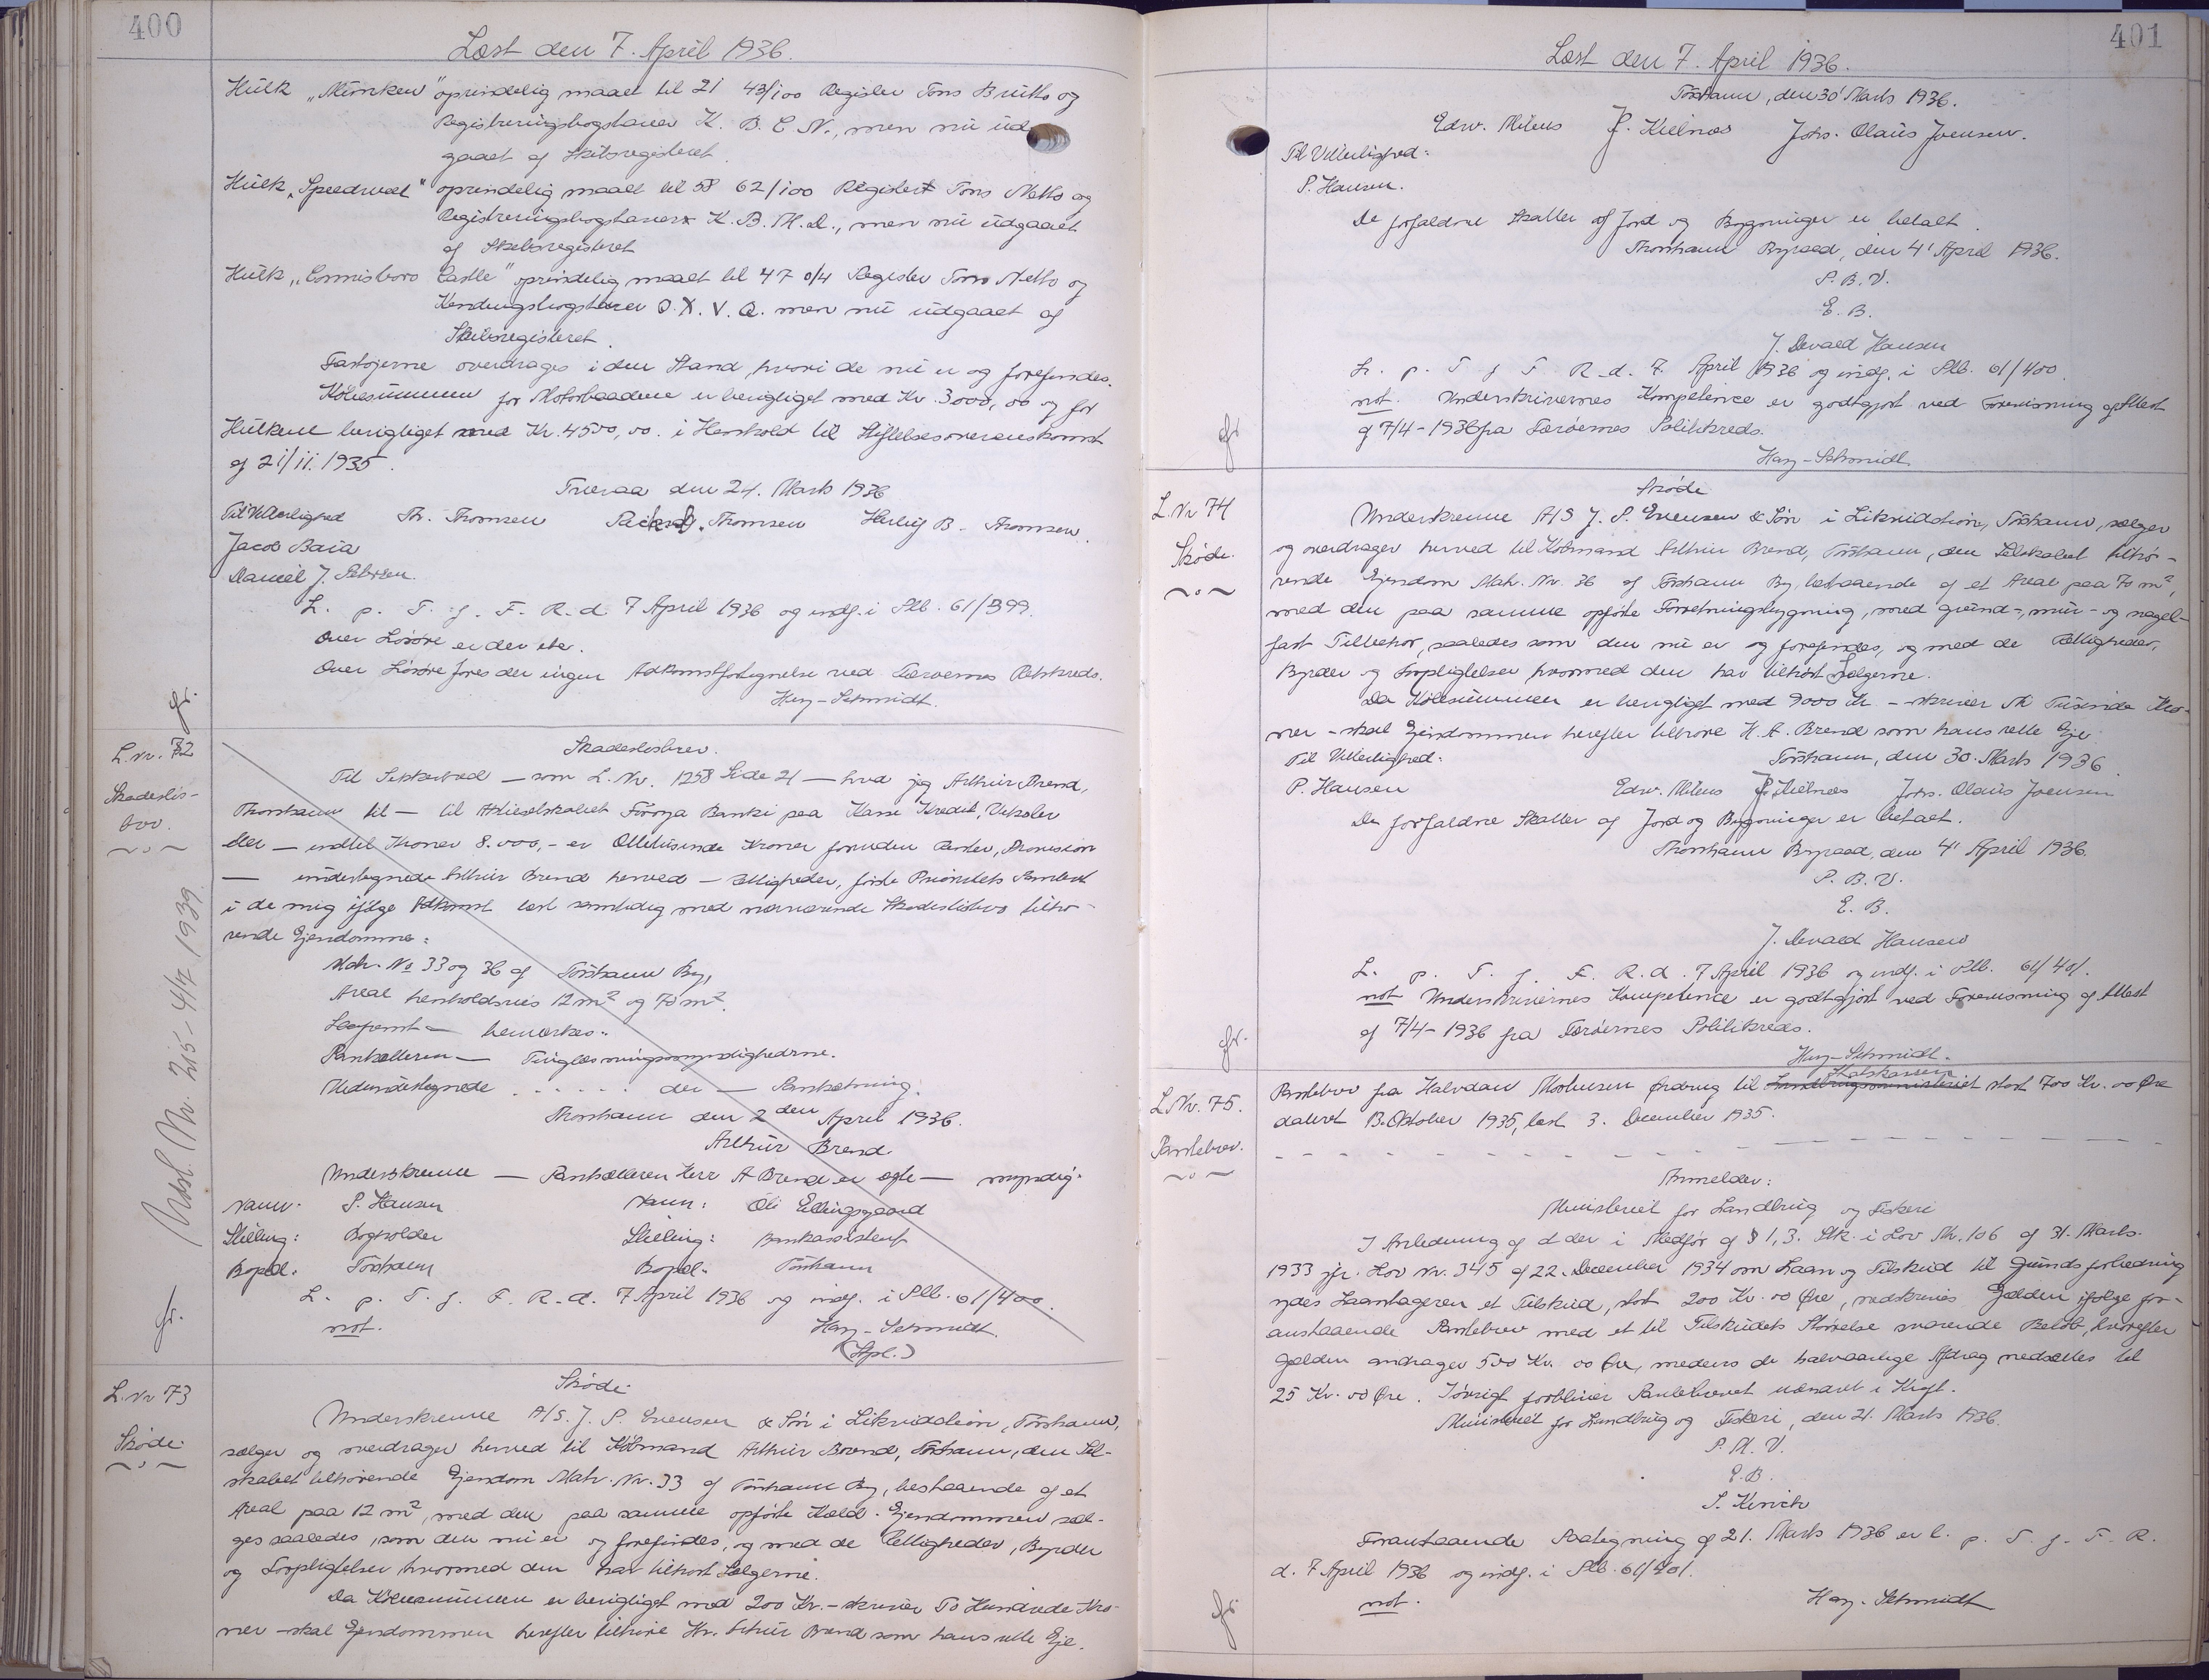 400
Læst den 7. April 1936.
Hulk „Munken" oprindelig maalt til 21 43/100 Register Tons Brutto og
Registreringsbogstaver K. B. C. N., men nu ud
gaaet af Skibsregisteret.
Hulk „Speedwell" oprindelig maalt til 58 62/100 Register Tons Netto og
Registreringsbogstaver K. B. M. d., men nu udgaaet
af Skibsregisteret
Hulk „Connisboro Castle" oprindelig maalt til 47 0/4 Register Tons Netto og
Kendingsbogstaver O. X. V. Q. men nu udgaaet af
Skibsregisteret.
Fartøjerne overdrages i den Stand, hvori de nu er og forefindes.
Købesummen for Motorbaadene er berigtiget med Kr. 3000,00 og for
Hulkene berigtiget med Kr. 4500,00. i Henhold til Stiftelsesoverenskomst
af 21/11. 1935.
Tveraa den 24. Marts 1936
Til Vitterlighed Th. Thomsen Thomsen B. Thomsen.
Jacob Baia
Daniel J. Petersen.
L. p. T. f. F. R. d. 7 April 1936 og indf. i Plb. 61/399.
Over Løsøre er der ike.
Over Løsøre føres der ingen Adkomstfortegnelse ved Færøernes Retskreds.
Hay-Schmidt.
L. Nr. 72
Skadesløs-
brev.
Udsl. Nr. 215 - 4/7 1939.
Skadesløsbrev.
Til Sikkerhed — som L. Nr. 1258 Side 21 — hvad jeg Arthur Brend,
Thorshavn til — til Aktieselskabet Føroya Banki paa Kasse Kredit, Veksler
eller — indtil Kroner 8.000,- er Ottetusinde Kroner foruden Renter, Provision
— undertegnede Arthur Brend herved — rettigheder, første Prioritets Panteret
i de mig ifølge Adkomst læst samtidig med nærværende Skadesløsbrev tilhø-
rende Ejendomme:
Matr. No 33 og 36 af Tórshavn By,
Areal henholdsvis 12 m² og 70 m².
— bemærkes:
Panthaveren — Tinglæsningsmyndighederne.
Medundertegnede - - - - - der — Pantsætning.
Thorshavn den 2den April 1936.
Arthur Brend.
Underskrevne — Panthaveren Herr A Brend er ægte — myndig:
Navn: P. Hansen Navn: Óli Ellingsgaard
Stilling: Bogholder Stilling: Bankassistent
Bopæl: Tórshavn Bopæl: Tórshavn
L. p. T. f. F. R. d. 7 April 1936 og indf. i Plb. 61/400.
not. Hay-Schmidt.
(Stpl.)
L. Nr 73
Skøde
Skøde
Underskrevne A/S. J. P. Evensen & Søn i Likvidation, Tórshavn,
sælger og overdrager herved til Købmand Arthur Brend, Tórshavn, den Sel-
skabet tilhørende Ejendom Matr. Nr. 33 af Tórshavn By, bestaaende af et
Areal paa 12 m², med den paa samme opførte Hæld. Ejendommen sæl-
ges saaledes, som den nu er og forefindes, og med de Rettigheder, Byrder
og Forpligtelser hvormed den har tilhørt Sælgerne.
Da Købesummen er berigtiget med 200 Kr. - skriver To Hundrede Kro-
ner - skal Ejendommen herefter tilhøre Hr. Arthur Brend som hans rette Eje.
401
Læst den 7. April 1936.
Tórshavn, den 30' Marts 1936.
Edw. Mitens J. Kielnæs Johs. Olaus Joensen.
Til Vitterlighed:
P. Hansen.
De forfaldne Skatter af Jord og Bygninger er betalt.
Thorshavn Byraad, den 4' April 1936.
P. B. V.
E. B.
J. Devald Hansen
L. p. T. f. F. R. d. 7. April 1936 og indf. i Plb. 61/400.
not. Underskrivernes Kompetence er godtgjort ved Forevisning af Attest
af 7/4-1936 fra Færøernes Politikreds.
Hay-Schmidt.
L. Nr 74
Skøde.
Skøde
Underskrevne A/S J. P. Evensen & Søn i Likvidation, Tórshavn, sælger
og overdrager herved til Købmand Arthur Brend, Tórshavn, den Selskabet tilhø-
rende Ejendom Matr. Nr. 36 af Tórshavn By, bestaaende af et Areal paa 70 m²,
med den paa samme opførte Forretningsbygning, med grund-, mur- og nagel-
fast Tilbehør, saaledes som den nu er og forefindes, og med de Rettigheder,
Byrder og Forpligtelser hvormed den har tilhørt Sælgerne.
Da Købesummen er berigtiget med 9000 Kr - skriver Ni Tusinde Kro-
ner - skal Ejendommen herefter tilhøre H. A. Brend som hans rette Eje.
Til Vitterlighed: Tórshavn, den 30. Marts 1936.
P. Hansen Edw. Mitens J. Kielnæs Johs. Olaus Joensen
De forfaldne Skatter af Jord og Bygninger er betalt.
Thorshavn Byraad, den 4' April 1936.
P. B. V.
E. B.
J. Devald Hansen
L. p. T. f. F. R. d. 7 April 1936 og indf. i Plb. 61/401.
not Underskrivernes Kompetence er godtgjort ved Forevisning af Attest
af 7/4-1936 fra Færøernes Politikreds.
Hay-Schmidt.
L. Nr. 75.
Pantebrev.
Statskassen
Pantebrev fra Halvdan Mortensen Ørdevig til Landbrugsministeriet stort 700 Kr. 00 Øre
dateret 13. Oktober 1935, læst 3. December 1935.
Anmelder:
Ministeriet for Landbrug og Fiskeri
I Anledning af at der i Medfør af § 1, 3. Stk. i Lov Nr. 106 af 31. Marts
1933 jfr. Lov Nr. 345 af 22. December 1934 om Laan og Tilskud til Grundforbedring
ydes Laantageren et Tilskud, stort 200 Kr. 00 Øre, nedskrives Gælden ifølge for-
anstaaende Pantebrev med et til Tilskudets Størrelse svarende Beløb, hvorefter
Gælden andrager 500 Kr. 00 Øre, medens de halvaarlige Afdrag nedsættes til
25 Kr. 00 Øre. Iøvrigt forbliver Pantebrevet uændret i Kraft.
Ministeriet for Landbrug og Fiskeri, den 21. Marts 1936.
P. M. V.
E. B.
S. Kinch
Foranstaaende Paategning af 21. Marts 1936 er l. p. T. f. F. R.
d. 7 April 1936 og indf. i Plb. 61/401.
not. Hay-Schmidt